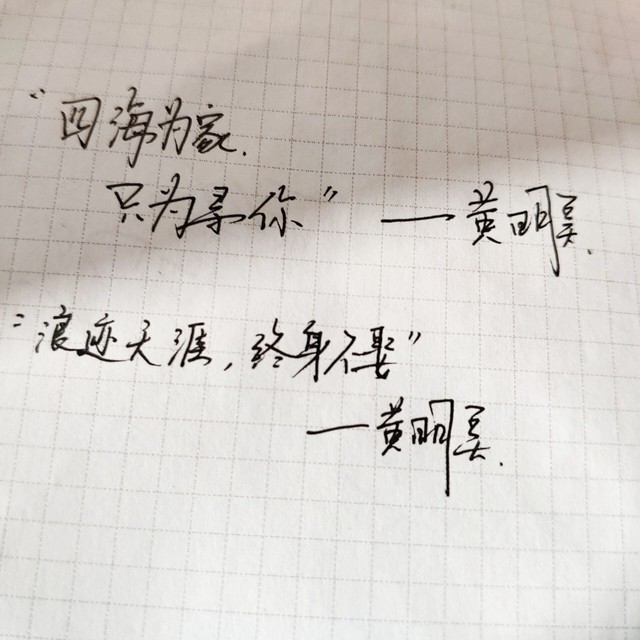 “四海为家.
只为寻你” —黄明昊.
“浪迹天涯,终身不娶”
—黄明昊.